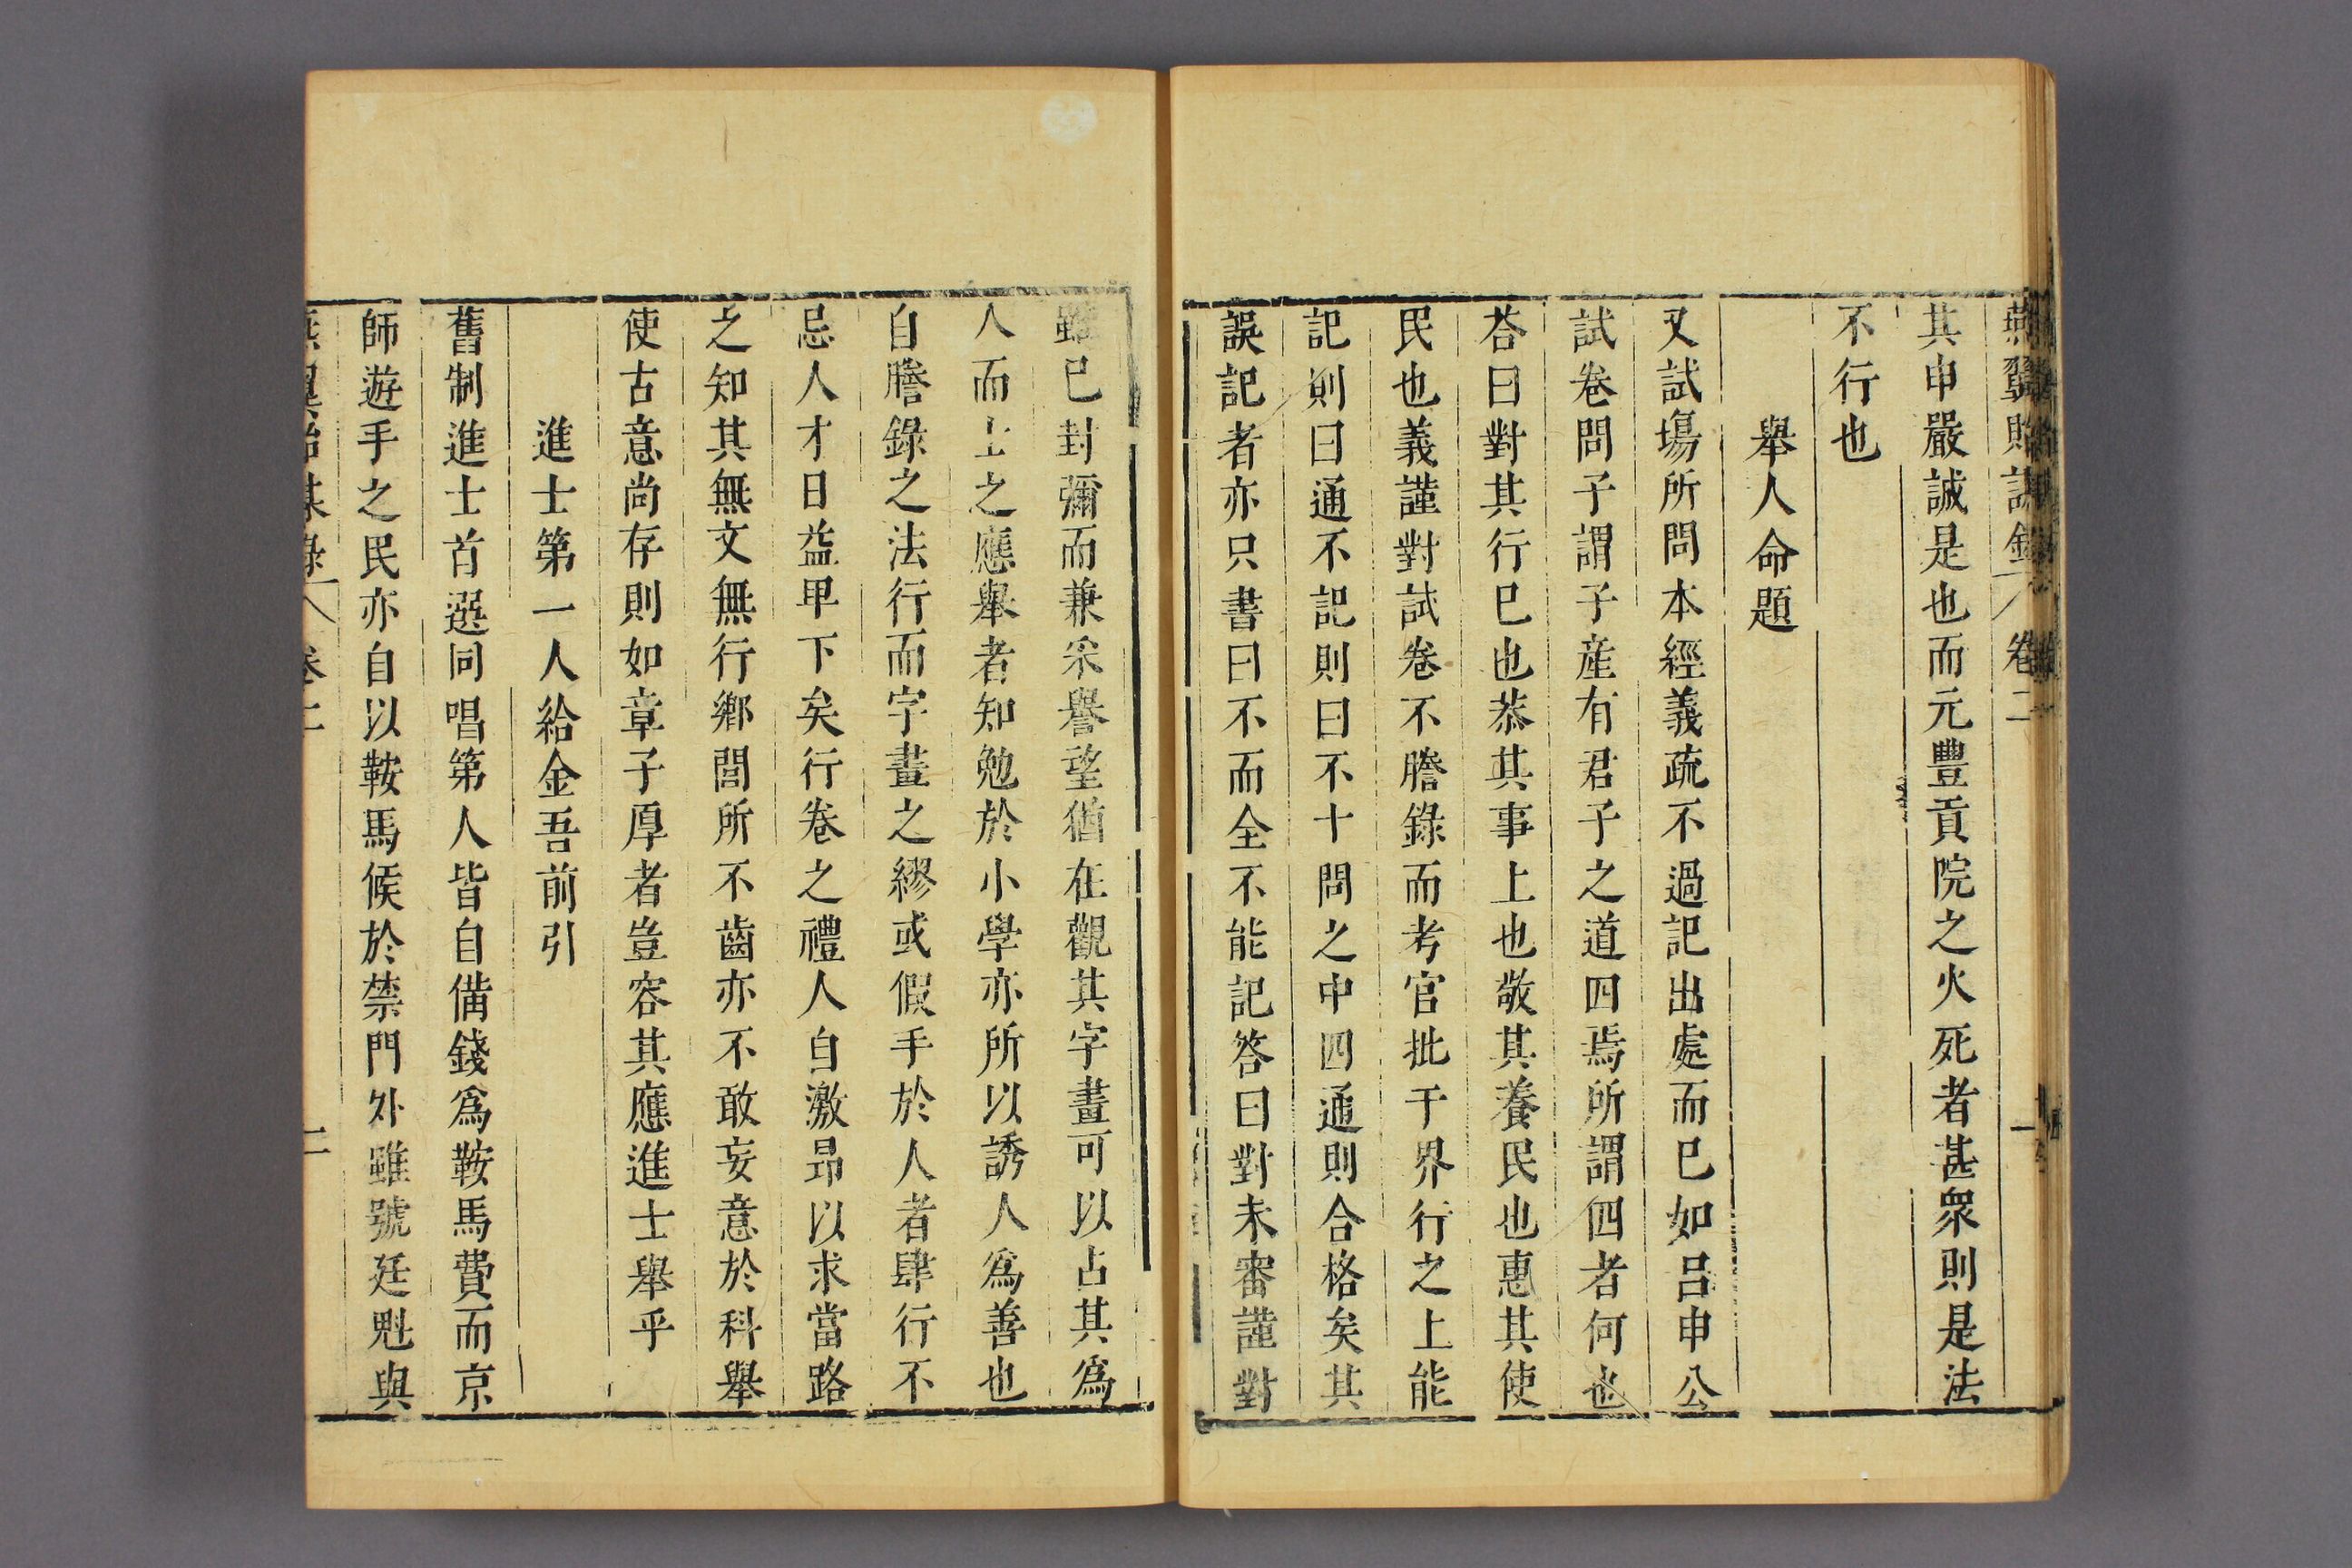 燕翼貽謀錄 卷二 一
其申嚴誠是也而元豐貢院之火死者甚衆則是法
不行也
舉人命題
又試場所問本經義疏不過記出處而已如吕申公
試卷問子謂子産有君子之道四焉所謂四者何也
荅曰對其行已也恭其事上也敬其養民也惠其使
民也義謹對試卷不謄錄而考官批于界行之上能
記則曰通不記則曰不十問之中四通則合格矣其
誤記者亦只書曰不而全不能記答曰對未審謹對
雖已封彌而兼采譽望猶在觀其字畫可以占其爲
人而士之應舉者知勉於小學亦所以誘人爲善也
自謄錄之法行而字畫之繆或假手於人者肆行不
忌人才日益卑下矣行卷之禮人自激昂以求當路
之知其無文無行鄉閭所不齒亦不敢妄意於科舉
使古意尚存則如章子厚者豈容其應進士舉乎
進士第一人給金吾前引
舊制進士首選同唱第人皆自備錢爲鞍馬費而京
師遊手之民亦自以鞍馬候於禁門外雖號廷魁與
燕翼貽謀錄 卷二 二